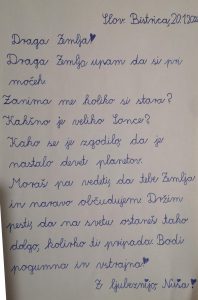 Slov. Bistrica, 20.1.
Draga Zemlja♥
Draga Zemlja upam da si pri
močeh.
Zanima me koliko si stara?
Kakšno je veliko Sonce?
Kako se je zgodilo, da je
nastalo devet planetov.
Moraš pa vedeti, da tebe Zemlja
in naravo občudujem. Držim
pesti, da na svetu ostaneš tako
dolgo, kolikor ti pripada. Bodi
pogumna in vztrajna♥
Z ljubeznijo, Nuša♥